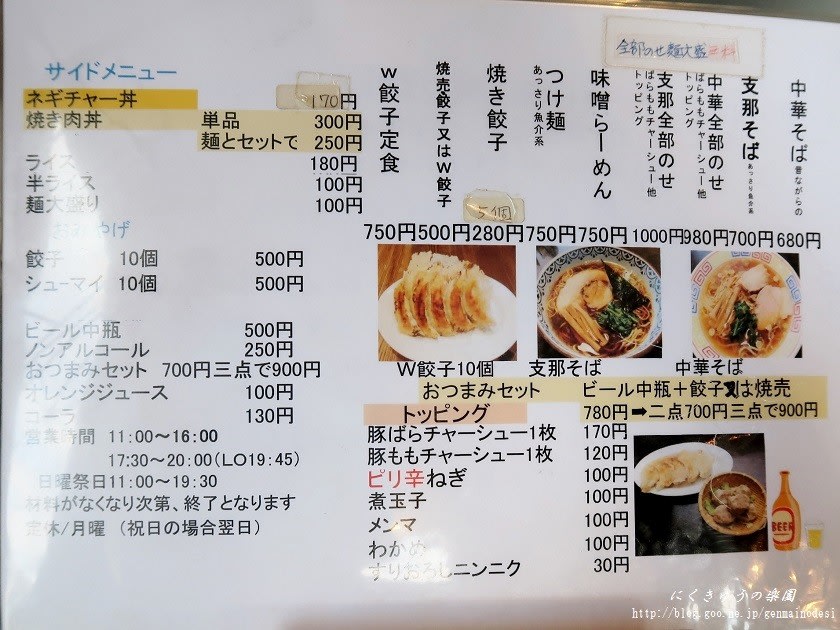 全部のせ麺大盛無料
中華そば 昔ながらの 680円
支那そば あっさり魚介系 700円
中華全部のせ ばらももチャーシュー他トッピング 980円
支那全部のせ ばらももチャーシュー他トッピング 1000円
味噌らーめん 750円
つけ麺 あっさり魚介系 750円
焼き餃子 5個 280円
焼売餃子又はW餃子 500円
W餃子定食 750円
サイドメニュー
ネギチャー丼 170円
焼き肉丼 単品 300円
麺とセットで 250円
ライス 180円
半ライス 100円
麺大盛り 100円
おみやげ
餃子 10個 500円
シューマイ 10個 500円
ビール中瓶 500円
ノンアルコール 250円
おつまみセット 700円三点で900円
オレンジジュース 100円
コーラ 130円
営業時間 11:00~16:00
17:30~20:00(LO19:45)
日曜祭日11:00~19:30
材料がなくなり次第、終了となります
定休/月曜 (祝日の場合翌日)
W餃子10個 支那そば 中華そば
おつまみセット ビール中瓶+餃子又は焼売
780円➡二点700円三点で900円
トッピング
豚ばらチャーシュー1枚 170円
豚ももチャーシュー1枚 120円
ピリ辛ねぎ 100円
煮玉子 100円
メンマ 100円
わかめ 100円
すりおろしニンニク 30円
BEER
にくきゅうの楽園
http://blog.goo.ne.jp/genmainodesi